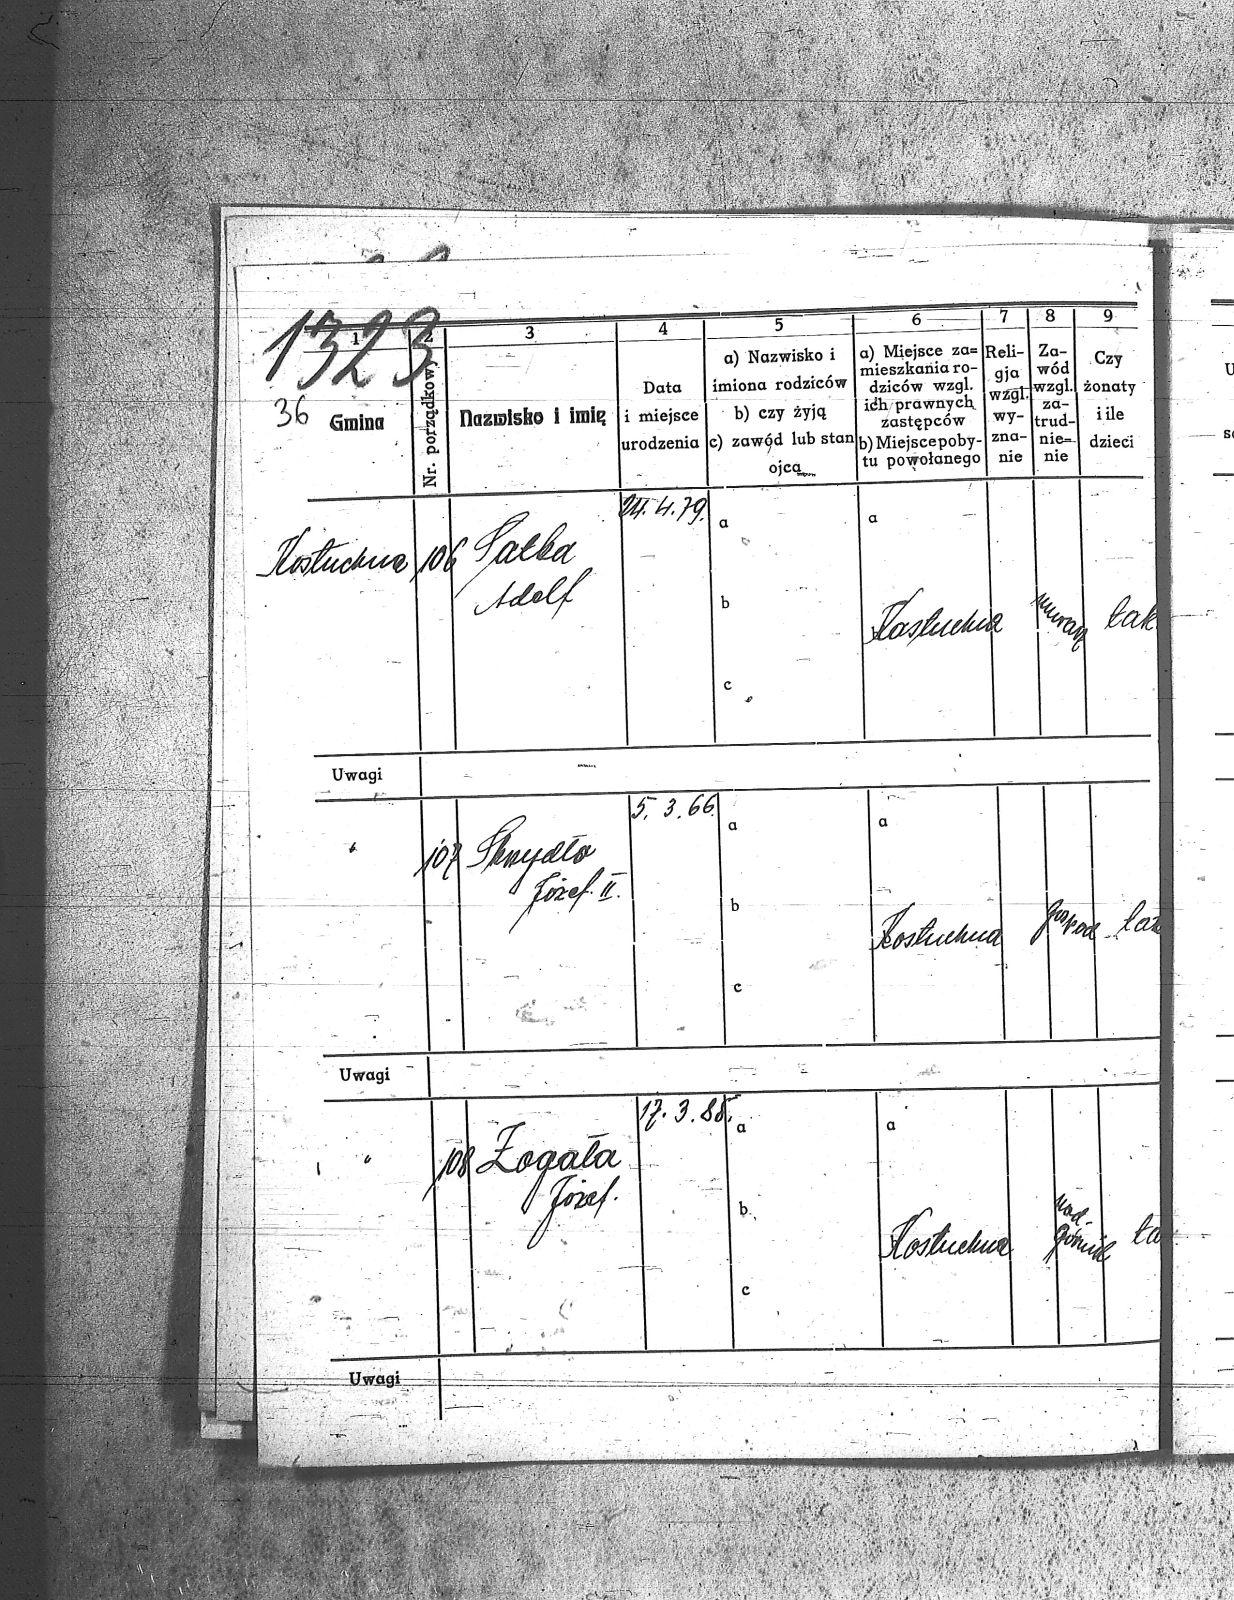 1323
36
1 2 3 4 5 6 7 8 9
Gmina
Nr. porządkowy
Nazwisko i imię
Data
i miejsce
urodzenia
a) Nazwisko i
imiona rodziców
b) czy żyją
c) zawód lub stan
ojca
a) Miejsce za=
mieszkania ro-
dziców wzgl.
ich prawnych
zastępców
b) Miejsce poby-
tu powołanego
Reli-
gja
wzgl.
wy-
zna-
nie
Za-
wód
wzgl.
za-
trud-
nie=
nie
Czy
żonaty
i ile
dzieci
Kostuchna 106
Adolf
24.4.79.
a
b
c
a
Kostuchna murarz tak
Uwagi
" 107 Skrzydło
Józef II.
5.3.66.
a
b
c
a
Kostuchna gospod tak
Uwagi
" 108 Zogała
Józef.
17.3.85.
a
b
c
a
Kostuchna nad-
górnik ta
Uwagi